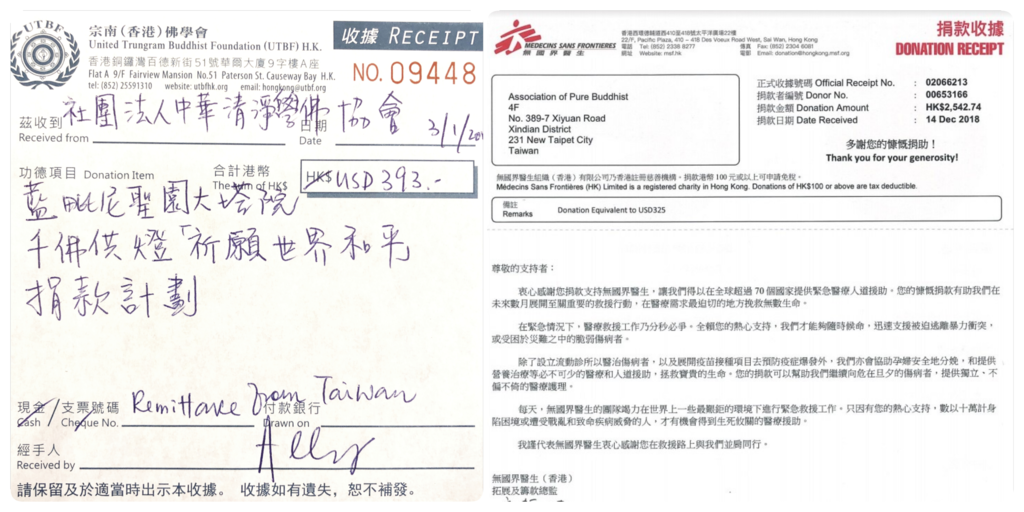 UTBF
宗南(香港)佛學會
United Trungram Buddhist Foundation (UTBF) H.K.
香港銅鑼灣百德新街51號華爾大廈9字樓A座
Flat A 9/F Fairview Mansion No.51 Paterson St. Causeway Bay H.K.
tel: (852) 25591310 website: utbfhk.org email: hongkong@utbf.org
收據 RECEIPT
NO. 09448
茲收到 社團法人中華清淨學佛協會
Received from
日期
Date 3/1/20
功德項目 Donation Item
合計港幣
The sum of HK$
HK$ USD 393.-
藍毗尼聖園大塔院
千佛供燈「祈願世界和平」
捐款計劃
現金/支票號碼 Remittance from Taiwan 付款銀行
Cash / Cheque No. Drawn on
經手人 Ally
Received by
請保留及於適當時出示本收據。 收據如有遺失,恕不補發。
MEDECINS SANS FRONTIERES
無國界醫生
香港西環德輔道西410至418號太平洋廣場22樓
22/F, Pacific Plaza, 410 - 418 Des Voeux Road West, Sai Wan, Hong Kong
電話 Tel: (852) 2338 8277 傳真 Fax: (852) 2304 6081
網址 Website: msf.hk 電郵 Email: donation@hongkong.msf.org
捐款收據
DONATION RECEIPT
Association of Pure Buddhist
4F
No. 389-7 Xiyuan Road
Xindian District
231 New Taipet City
Taiwan
正式收據號碼 Official Receipt No. : 02066213
捐款者編號 Donor No. : 00653166
捐款金額 Donation Amount : HK$2,542.74
捐款日期 Date Received : 14 Dec 2018
多謝您的慷慨捐助!
Thank you for your generosity!
無國界醫生組織(香港)有限公司乃香港註冊慈善機構。捐款港幣 100 元或以上可申請免稅。
Médecins Sans Frontières (HK) Limited is a registered charity in Hong Kong. Donations of HK$100 or above are tax deductible.
備註
Remarks Donation Equivalent to USD325
尊敬的支持者:
衷心感謝您捐款支持無國界醫生,讓我們得以在全球超過 70 個國家提供緊急醫療人道援助。您的慷慨捐款有助我們在
未來數月展開至關重要的救援行動,在醫療需求最迫切的地方挽救無數生命。
在緊急情況下,醫療救援工作乃分秒必爭。全賴您的熱心支持,我們才能夠隨時候命,迅速支援被迫逃離暴力衝突,
或受困於災難之中的脆弱傷病者。
除了設立流動診所以醫治傷病者,以及展開疫苗接種項目去預防疫症爆發外,我們亦會協助孕婦安全地分娩,和提供
營養治療等必不可少的醫療和人道援助,拯救寶貴的生命。您的捐款可以幫助我們繼續向危在旦夕的傷病者,提供獨立、不
偏不倚的醫療護理。
每天,無國界醫生的團隊竭力在世界上一些最艱鉅的環境下進行緊急救援工作。只因有您的熱心支持,數以十萬計身
陷困境或遭受戰亂和致命疾病威脅的人,才有機會得到生死攸關的醫療援助。
我謹代表無國界醫生衷心感謝您在救援路上與我們並肩同行。
無國界醫生(香港)
拓展及籌款總監